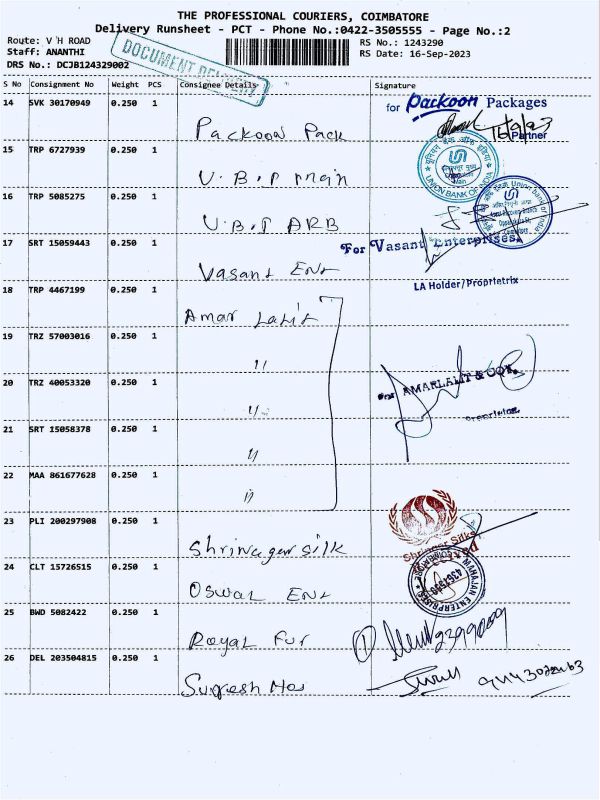 THE PROFESSIONAL COURIERS, COIMBATORE
Delivery Runsheet - PCT - Phone No.:0422-3505555 - Page No.:2
Route: V H ROAD
Staff: ANANTHI
DRS No.: DCJB124329002
DOCUMENT DELIVERY
RS No.: 1243290
RS Date: 16-Sep-2023
S No Consignment No Weight PCS Consignee Details Signature
14 SVK 30170949 0.250 1
Packoon Pack
for Packoon Packages
16/9/23
Partner
15 TRP 6727939 0.250 1
U.B.I main
UNION BANK OF INDIA
16 TRP 5085275 0.250 1
U.B.I ARB
Union bank of India
17 SRT 15059443 0.250 1
Vasant Ent
For Vasant Enterprises,
LA Holder/Proprietrix
18 TRP 4467199 0.250 1
Amar Lalit
19 TRZ 57003016 0.250 1
"
20 TRZ 40053320 0.250 1
"
For AMARLALIT & COY.
Proprietor
21 SRT 15058378 0.250 1
"
22 MAA 861677628 0.250 1
"
23 PLI 200297908 0.250 1
Shrinagar silk
Shringar Silks
24 CLT 15726515 0.250 1
Oswal Ent
MAHAJAN ENTERPRISES
25 BWD 5082422 0.250 1
Royal Fur
26 DEL 203504815 0.250 1
Supresh Hos